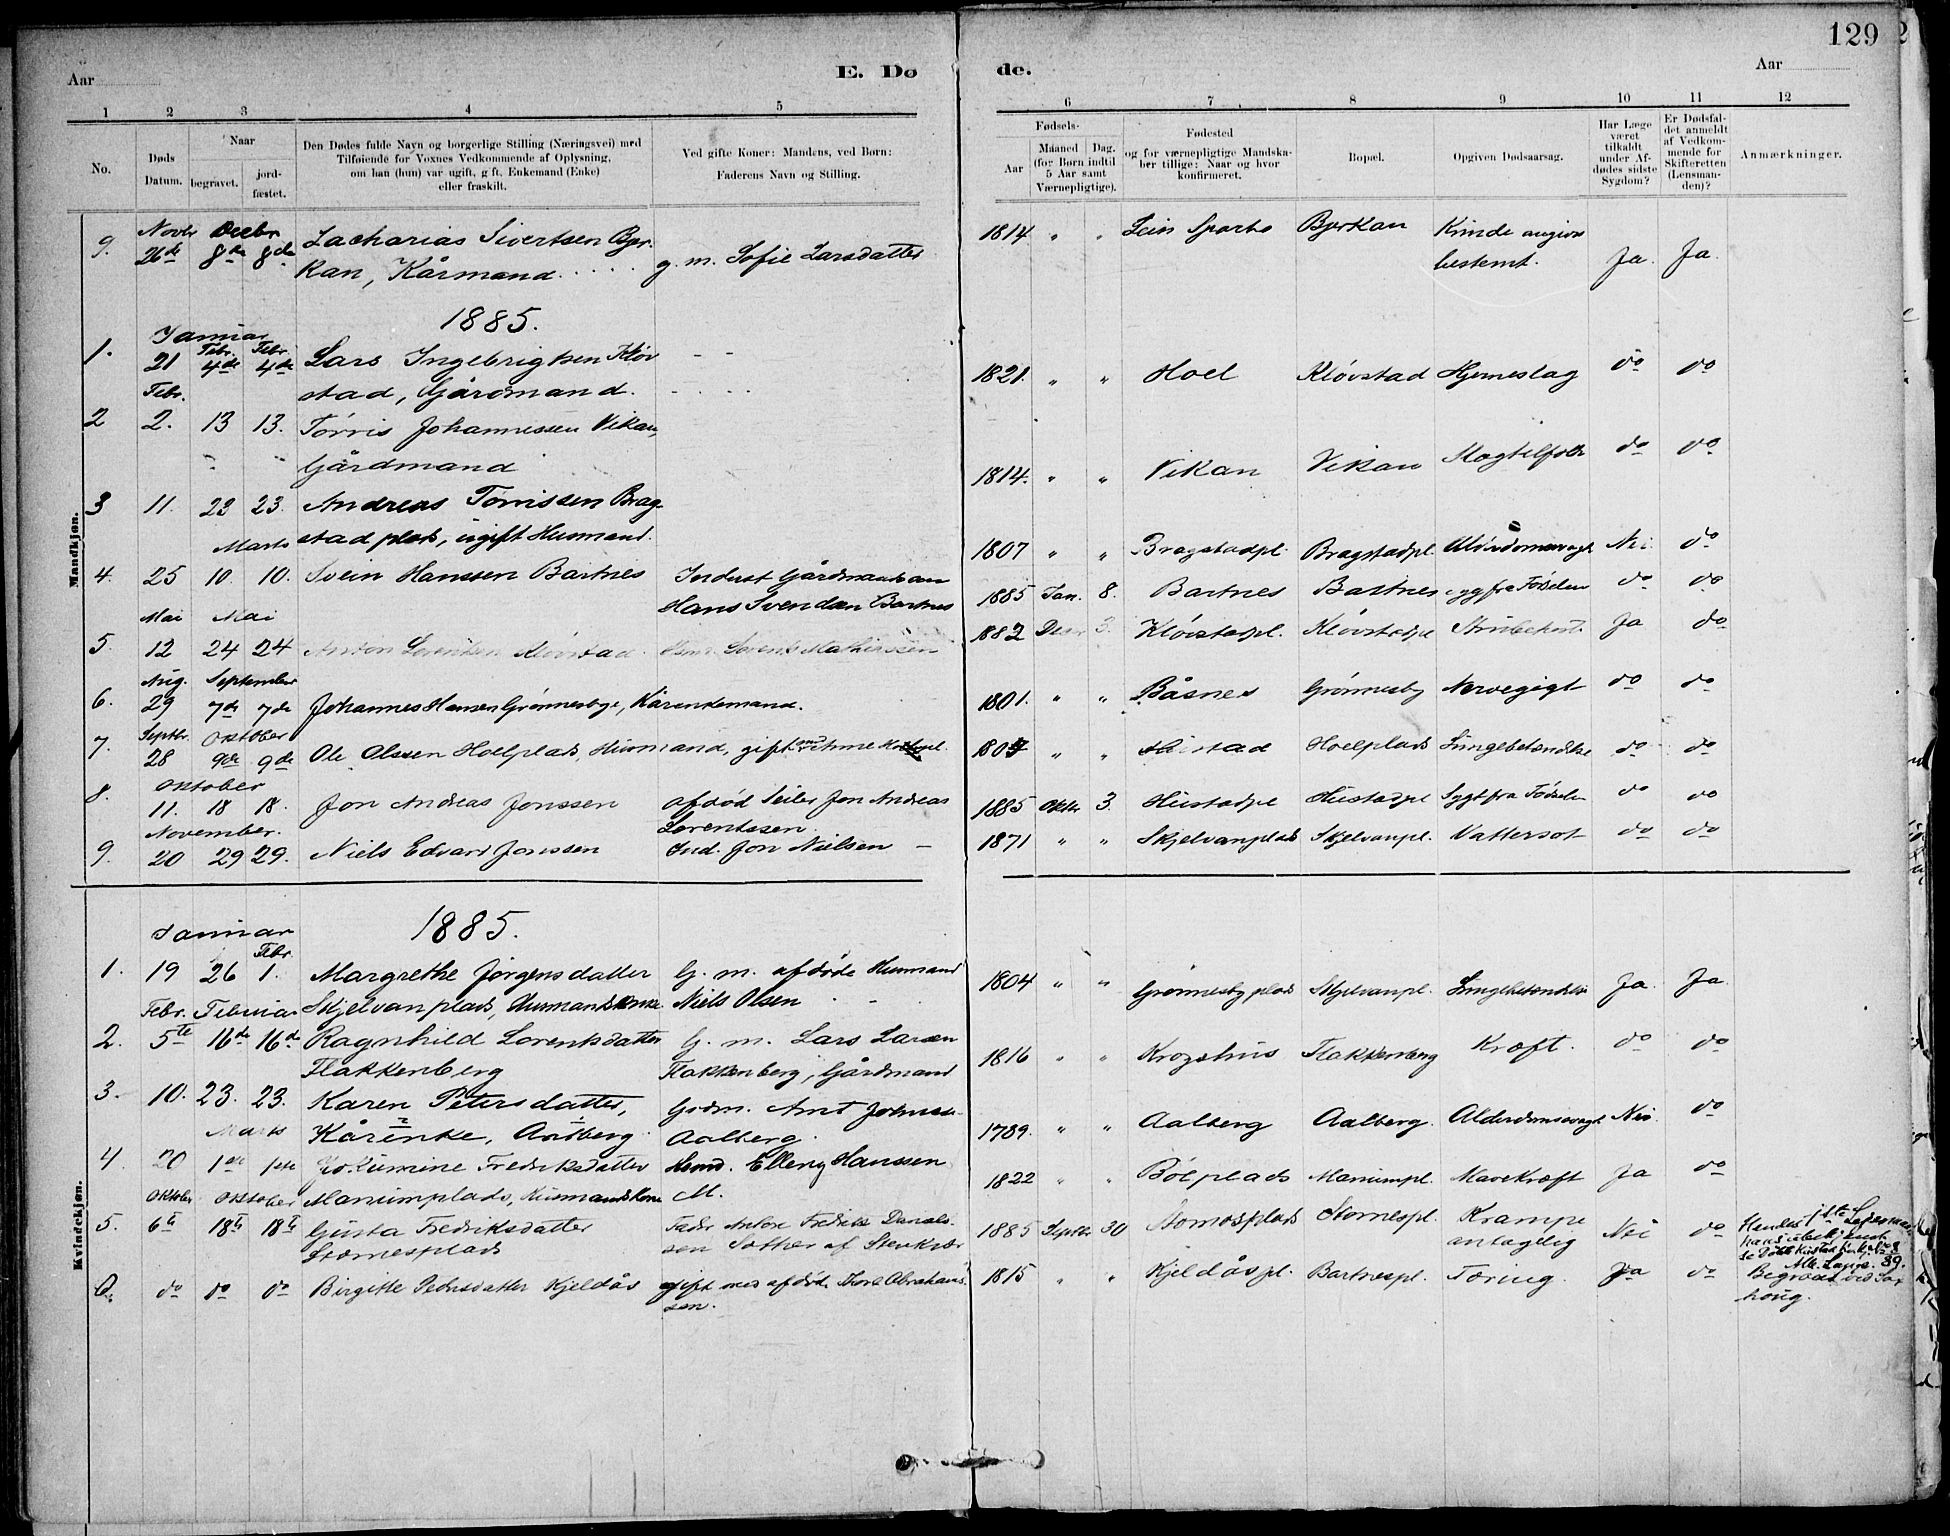 129
Aar
E. Dø
de.
Aar
1 2 3 4 5 6 7 8 9 10 11 12
No.
Døds Datum.
Naar
begravet.
jord-
fæstet.
Den Dødes fulde Navn og borgerlige Stilling (Næringsvei) med
Tilføiende for Voxnes Vedkommende af Oplysning,
om han (hun) var ugift, gift, Enkemand (Enke)
eller fraskilt.
Ved gifte Koner: Mandens, ved Børn:
Faderens Navn og Stilling.
Fødsels-
Aar
Maaned Dag.
(for Børn indtil
5 Aar samt
Værnepligtige).
Fødested
og for værnepligtige Mandska-
ber tillige: Naar og hvor
konfirmeret.
Bopæl.
Opgiven Dødsaarsag.
Har Læge
været
tilkaldt
under Af-
dødes sidste
Sygdom?
Er Dødsfal-
det anmeldt
af Vedkom-
mende for
Skifteretten
(Lensman-
den)?
Anmærkninger.
Mandkjøn.
Novbr Decbr
9. 26de 8de 8de Zacharias Sivertsen Bjer-
kan, Kårmand g. m. Sofie Larsdatter 1814 " " Lein Sparbo Bjerkan
bestemt. Ja. Ja.
1885.
Januar Febr. Febr.
1. 21 4de 4de Lars Ingebrigtsen Kløv
stad, Gårdmand. 1821. " " Hoel Kløvstad Hjerneslag do do
Febr.
2 2. 13 13. Tørris Johannessen Vikan,
Gårdmand 1814. " " Vikan Vikan do do
3 11. 22 23. Andreas Tørrissen Brag-
stadplads, ugift Husmand. 1807 " " Bragstadpl. Bragstadpl. Alderdomssvagh. Nei. do
Marts
4. 25 10. 10. Svein Hanssen Bartnes Inderst Gårdmandssøn
Hans Svendsen Bartnes 1885 Jan. 8. Bartnes Bartnes syg fra Fødselen do do
Mai Mai
5. 12 24 24 Anton Lorentsen Kløvstad Lorents Mathiessen 1882 3. Kløvstadpl. Kløvstadpl Strubehoste Ja do
Aug. September
6. 29 7de 7de Johannes Hansen Grønnesbye, Kårenkemand. 1801. " " Båsnes Grønnesby Nervegigt do do
Septbr. Oktober
7. 28 9de 9de Ole Olssen Hoelplads, Husmand, gift med 180 " " Hoelplads Lungebetændelse do do
Oktober
8. 11. 18 18. Jon Andreas Jonssen afdød Seiler Jon Andreas
Lorentssen. 1885 Oktbr 3. Hustadpl Hustadpl Sygt fra Fødselen do do
November.
9. 20 29 29. Niels Edvard Jonssen Ind. Jon Nielsen 1871 " " Skjelvanplads Skjelvanpl. Vattersot do do
Kvindekjøn.
1885.
Januar Febr.
1. 19 26 1. Margrethe Jørgensdatter
Skjelvanplads, Husmandsenke G. m. afdøde Husmand
Niels Olsen 1804 " " Grønnesbyplads Skjelvanpl. Lungebetændelse Ja. Ja.
Febr. Februar
2. 5te 16de 16de Ragnhild Lorentsdatter
Flakkenberg G. m. Lars Larsen
Flakkenberg, Gårdmand 1816 " " Krogshus Flakkenberg Kræft. do do
3. 10. 23. 23. Karen Petersdatter,
Kårenke, Aalberg Gdm. Arnt Johnsen
Aalberg. 1789. " " Aalberg Aalberg. Alderdomssvagh. Nei. do
Marts
4. 20 1ste 1ste Jokumine Fredriksdatter
Manumplads, Husmandskone Hsmd. Elling Hanssen
M. 1822 " " Bølplads Manumpl. Mavekræft Ja do
Oktober Oktober
5. 6te 18de 18de Gusta Fredriksdatter
Størnesplads Fader Anton Fredrik Daniels-
sen af Stenkjær 1885 Septbr 30 Størnesplads Størnespl. Krampe
antagelig Nei do
6. do do do Birgitte Pedersdatter Kjeldås gift med afdøde Tore Abraham-
sen. 1815 " " Kjeldåspl. Bartnespl. Tæring. Ja do Begravet ved Sax
houg.